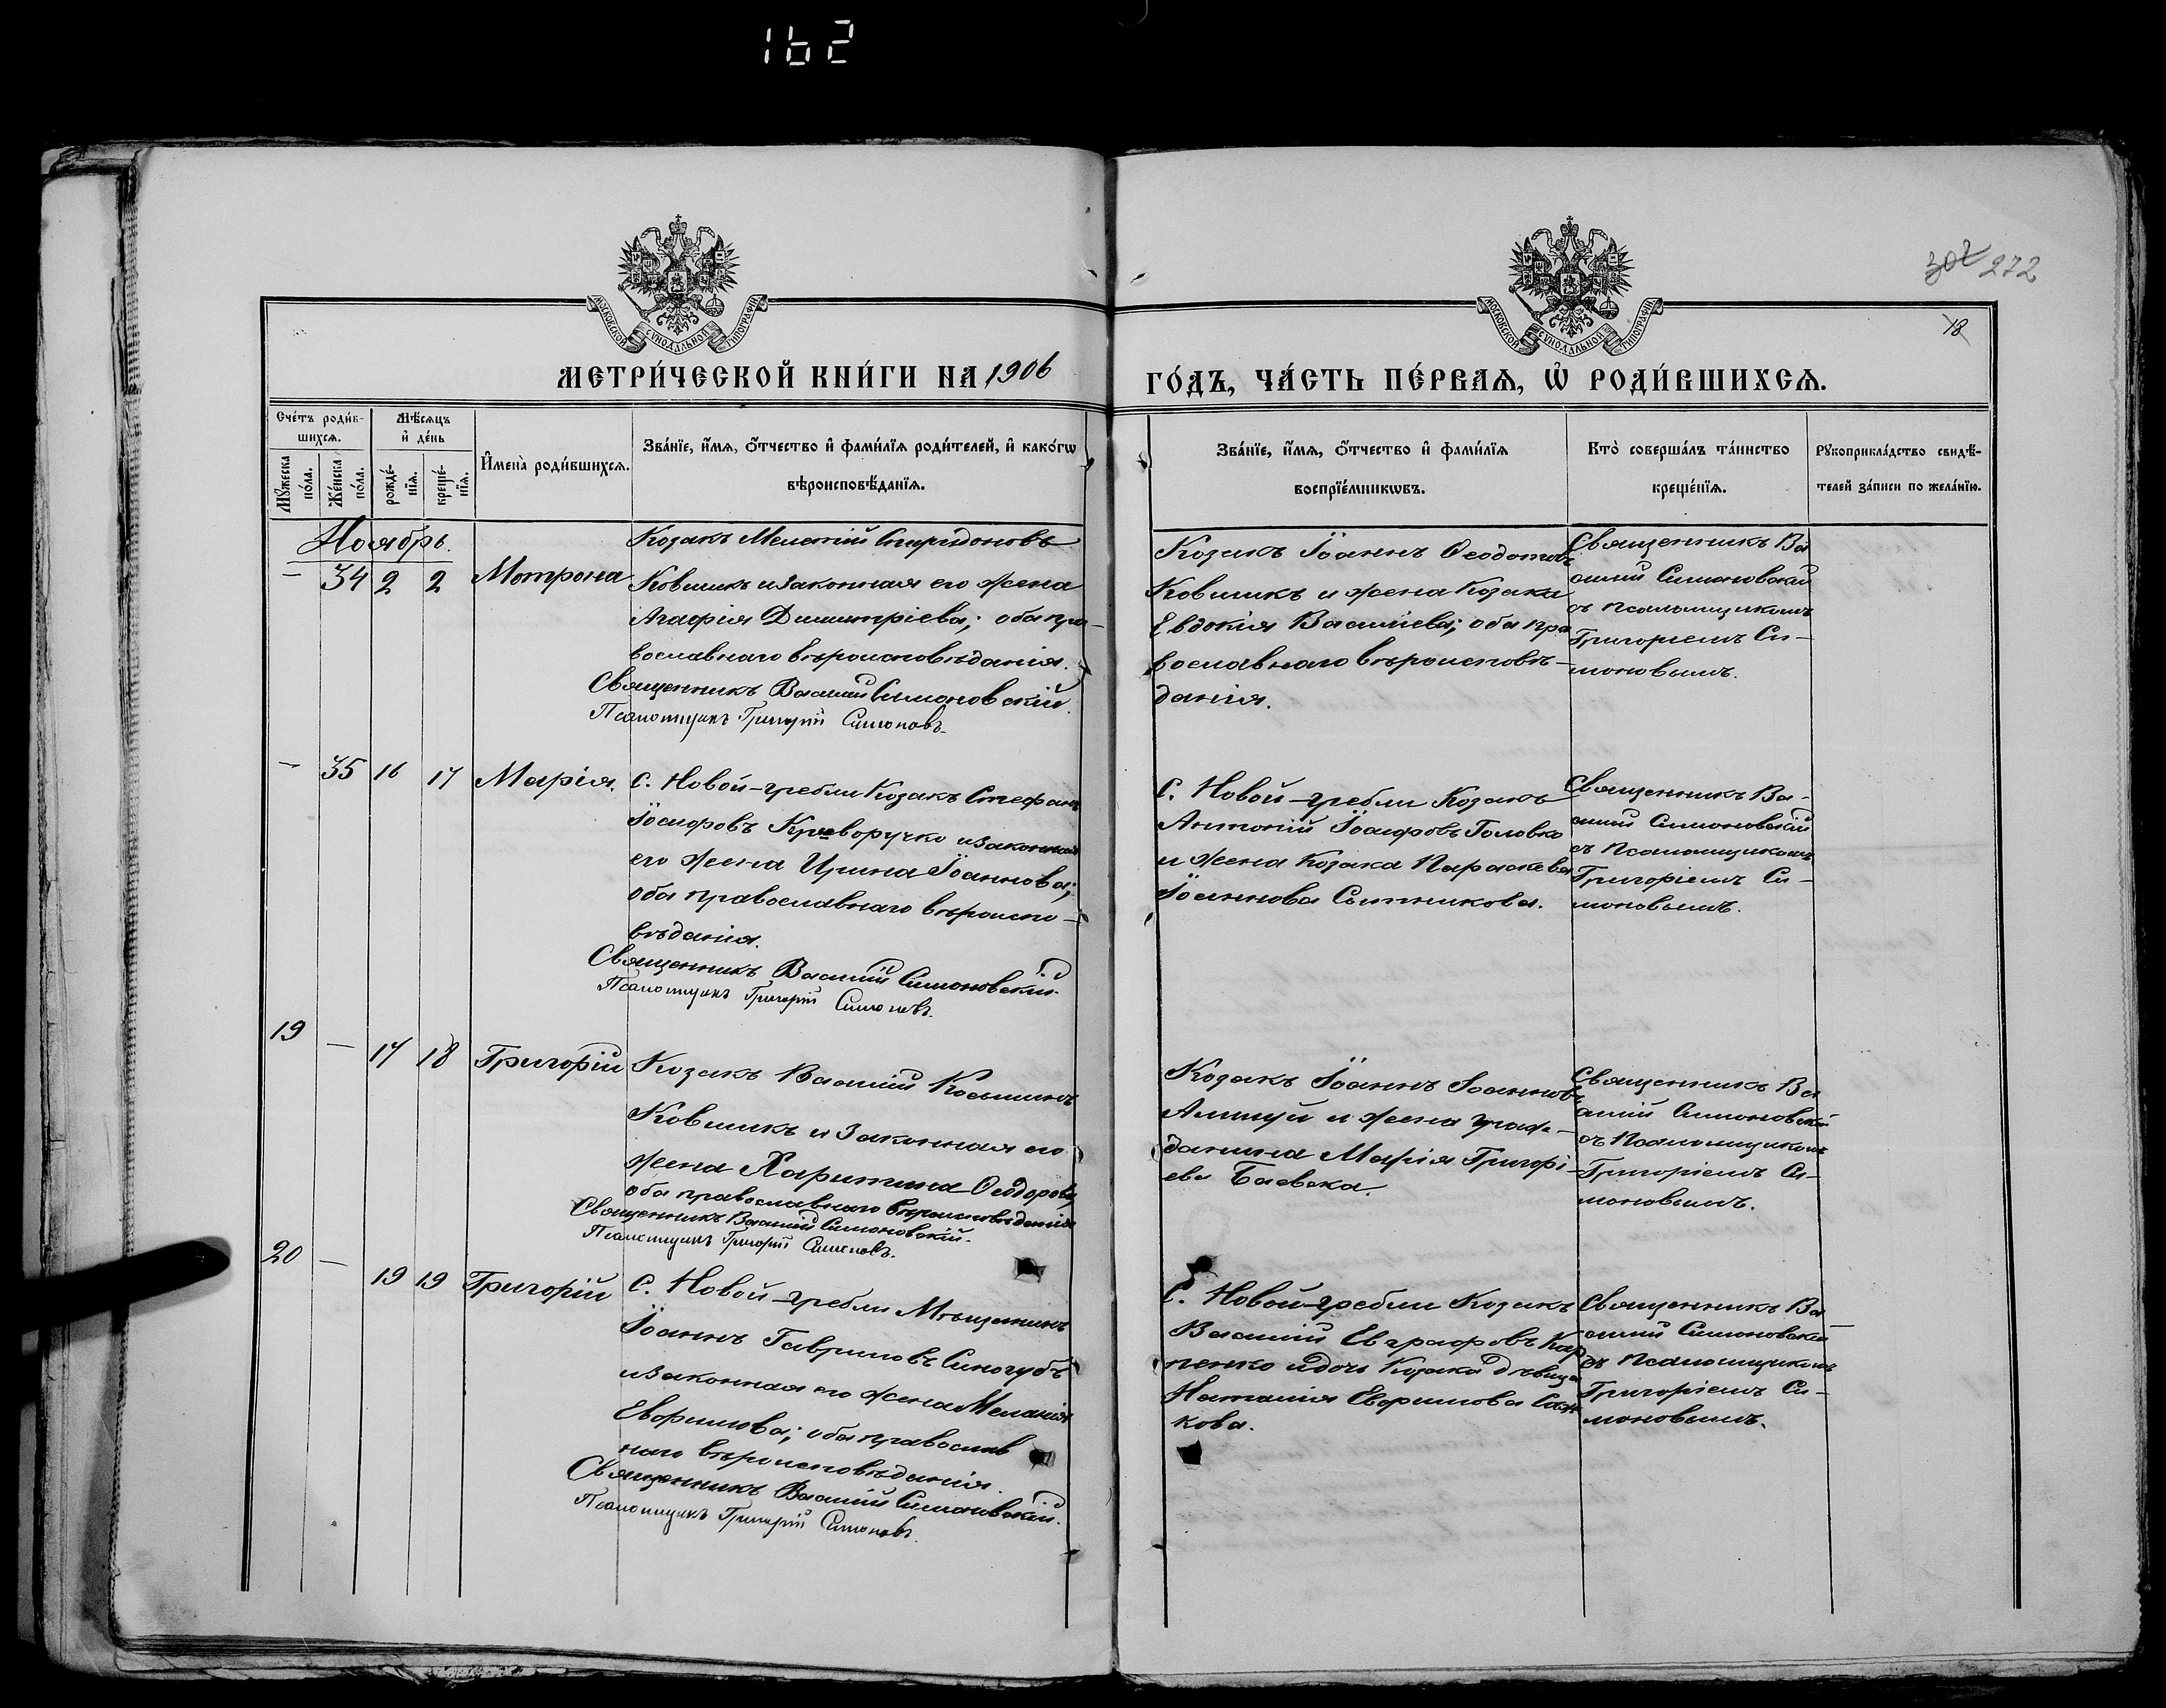 162
302 272
18
МОСКОВСКОЙ СѴНОДАЛЬНОЙ ТИПОГРАФІИ
МОСКОВСКОЙ СѴНОДАЛЬНОЙ ТИПОГРАФІИ
МЕТРИ́ЧЕСКОЙ КНИ́ГИ НА 1906
ГО́ДЪ, ЧА́СТЬ ПЕ́РВАѦ, Ѡ҆ РОДИ́ВШИХСѦ.
Сче́тъ роди́в-
шихсѧ.
Мꙋ́жеска по́ла.
Же́нска по́ла.
Мѣ́сѧцъ
и҆ де́нь
рожде́-
нїѧ.
креще́-
нїѧ.
И҆мена̀ роди́вшихсѧ.
Зва́нїе, и҆́мѧ, ѻ҆́тчество и҆ фами́лїѧ роди́телей, и҆ како́гѡ
вѣроисповѣ́данїѧ.
Зва́нїе, и҆́мѧ, ѻ҆́тчество и҆ фами́лїѧ
воспрїе́мникѡвъ.
Кто̀ соверша́лъ та́инство
креще́нїѧ.
Рꙋкоприкла́дство свидѣ́-
телей за́писи по жела́нїю.
Ноябрь.
— 34 2 2 Мотрона
Козакъ Мелетій Спиридоновъ
Ковшикъ и законная его жена
Агафія Димитріева; оба пра-
вославнаго вѣроисповѣданія.
Священникъ Василій Симоновскій.
Псаломщикъ Григорій Симоновъ.
Козакъ Іоаннъ Ѳеодотовъ
Ковшикъ и жена Козака
Евдокія Василіева; оба пра
вославнаго вѣроисповѣ-
данія.
Священникъ Ва
силій Симоновскій
съ псаломщикомъ
Григоріемъ Си-
моновымъ.
— 35 16 17 Марія.
С. Новой-гребли Козакъ Стефанъ
Іосифовъ Криворучко и законная
его жена Ирина Іоаннова;
оба православнаго вѣроиспо-
вѣданія.
Священникъ Василій Симоновскій.
Псаломщикъ Григорій Симоновъ.
С. Новой-гребли Козакъ
Антоній Іосифовъ Головко
и жена Козака Параскева
Іоаннова Сытникова.
Священникъ Ва-
силій Симоновскій
съ Псаломщикомъ
Григоріемъ Си-
моновымъ.
19 — 17 18 Григорій
Козакъ Василій Косьминъ
Ковшикъ и законная его
жена Харитина Ѳеодорова
оба православнаго вѣроисповѣданія
Священникъ Василій Симоновскій.
Псаломщикъ Григорій Симоновъ.
Козакъ Іоаннъ Іоанновъ
и жена граж-
данина Марія Григорі-
ева Баевска.
Священникъ Ва
силій Симоновскій
съ Псаломщикомъ
Григоріемъ Си-
моновымъ.
20 — 19 19 Григорій
С. Новой-гребли Мѣщанинъ
Іоаннъ Гавриловъ Синегубъ
и законная его жена Меланія
Евфимова; оба православ
наго вѣроисповѣданія.
Священникъ Василій Симоновскій.
Псаломщикъ Григорій Симоновъ.
С. Новой-гребли Козакъ
Василій Евграфовъ Кар
пенко и дочь Козака дѣвица
Наталія Евфимова
кова.
Священникъ Ва
силій Симоновскій
съ Псаломщикомъ
Григоріемъ Си-
моновымъ.